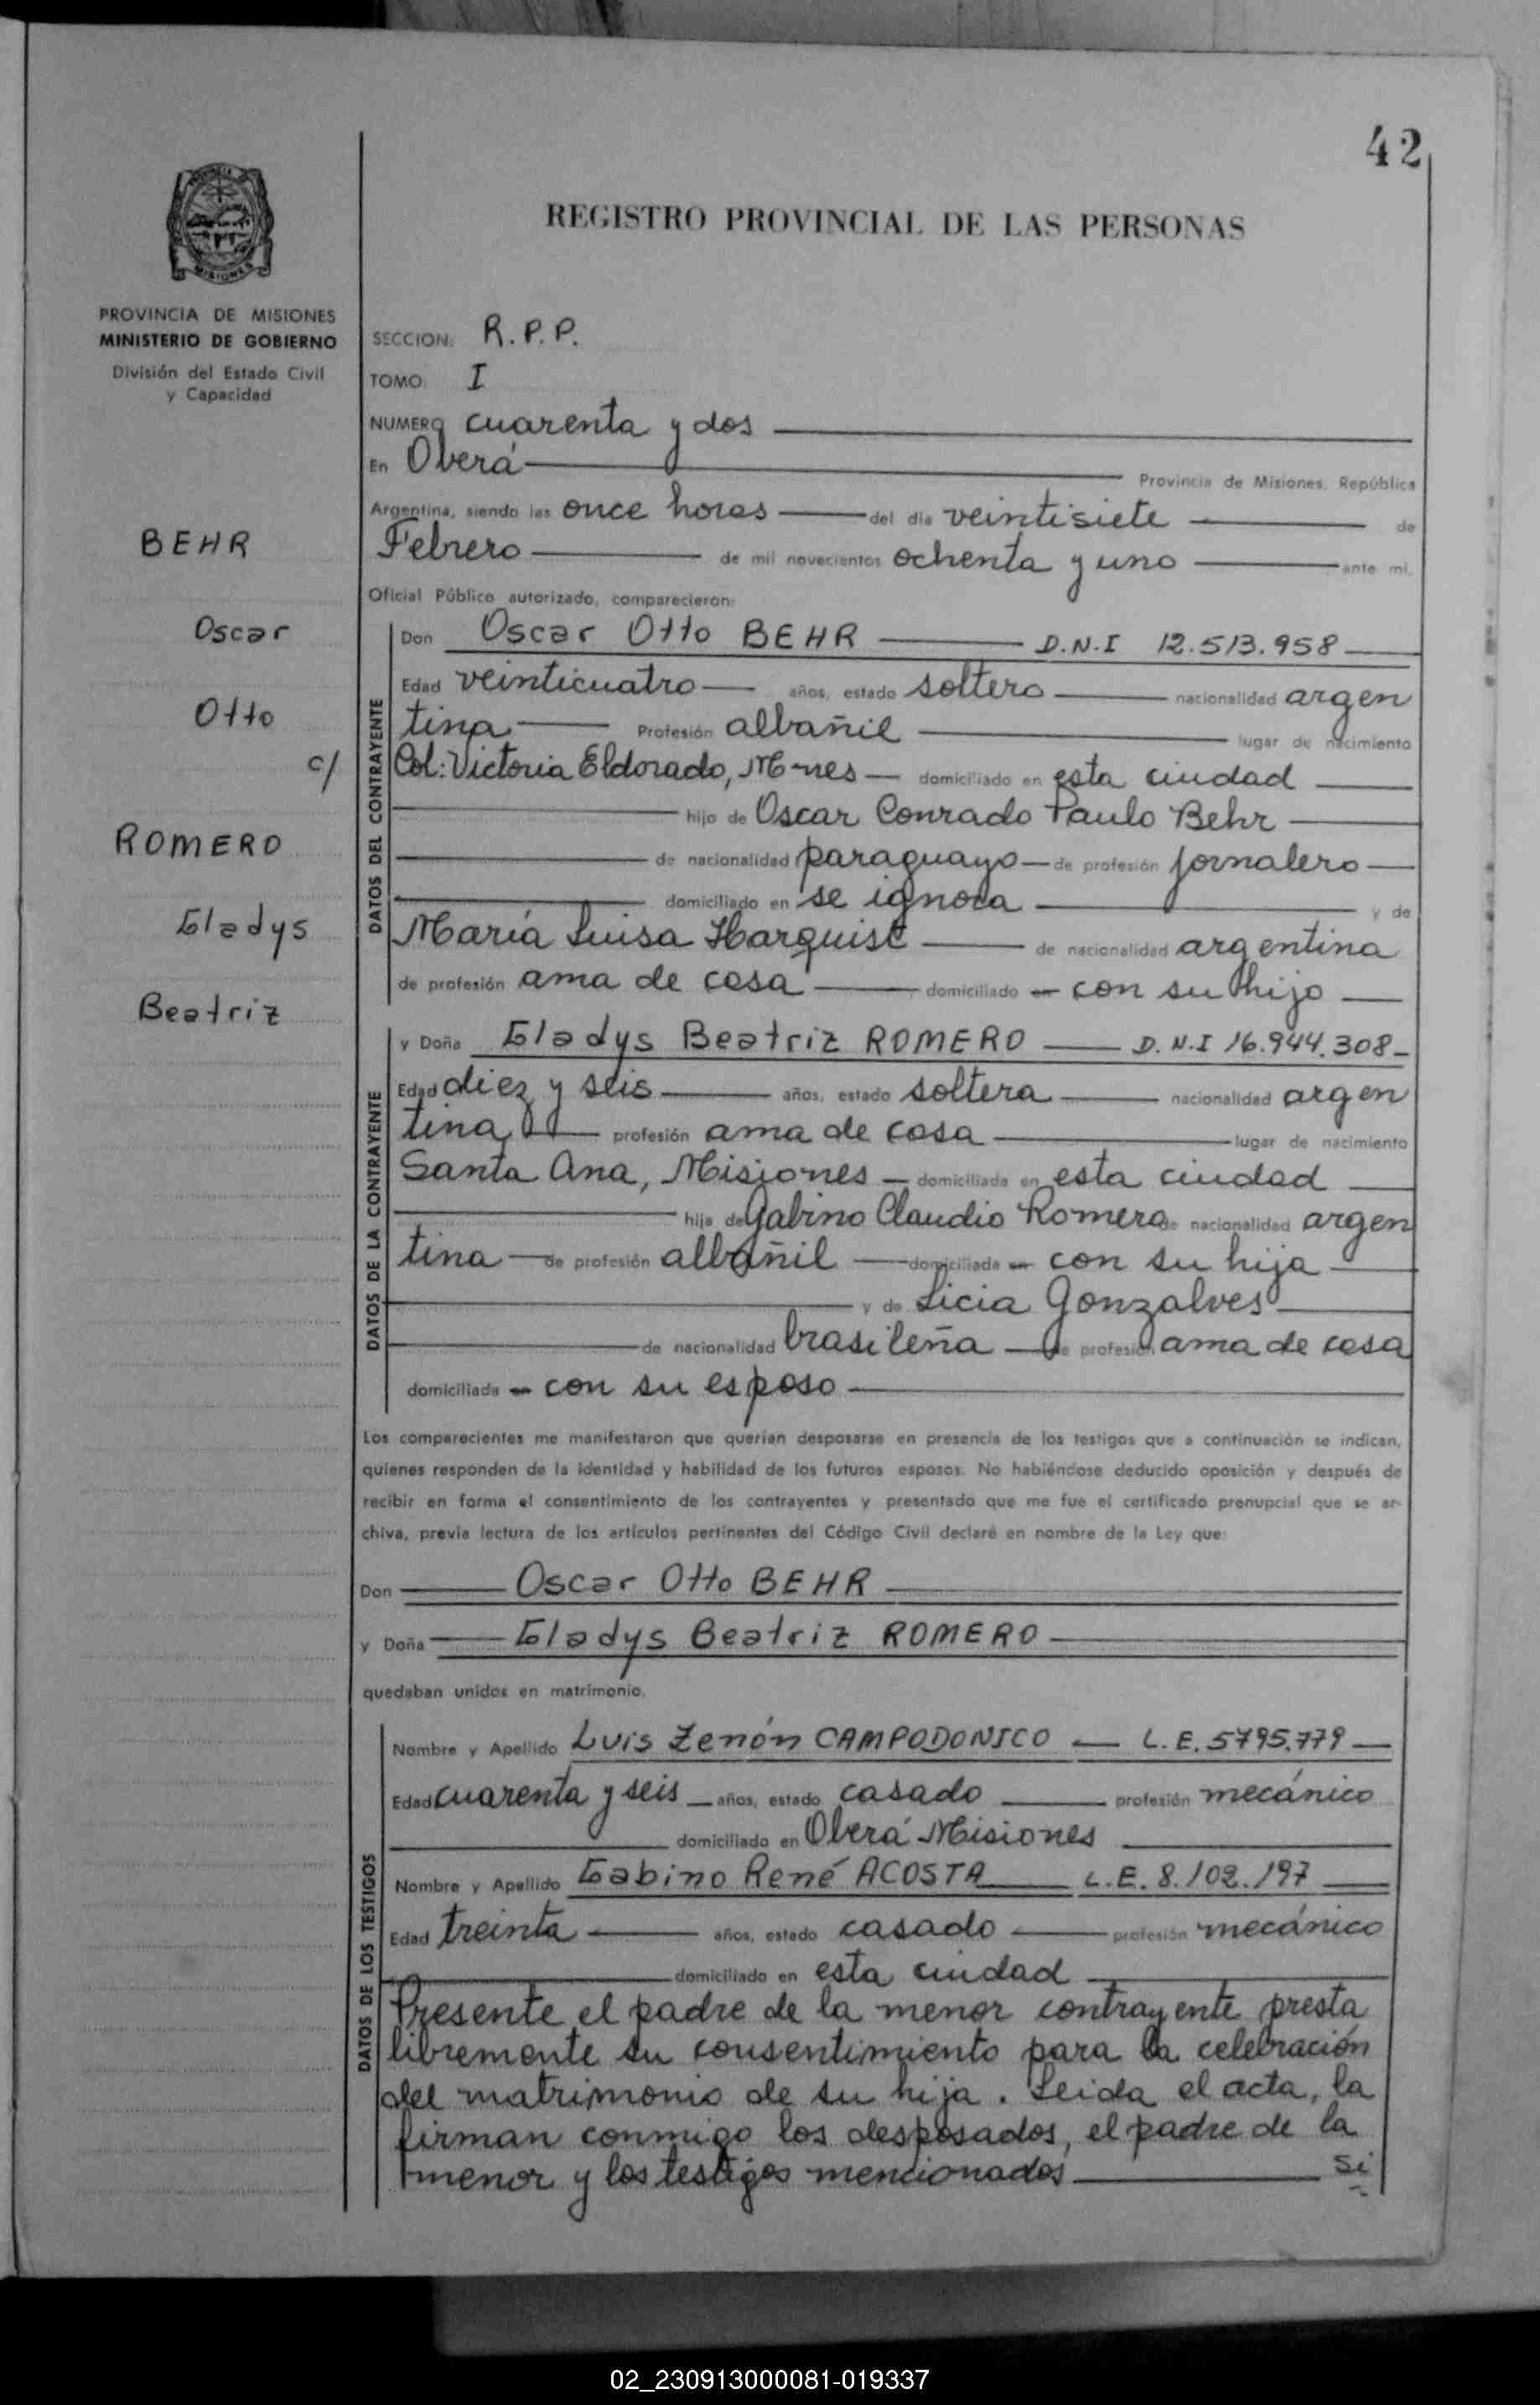 42
REGISTRO PROVINCIAL DE LAS PERSONAS
MISIONES
PROVINCIA DE MISIONES
MINISTERIO DE GOBIERNO
División del Estado Civil
y Capacidad
BEHR
Oscar
Otto
c/
ROMERO
Gladys
Beatriz
SECCION: R.P.P.
TOMO I
NUMERO cuarenta y dos
En Oberá Provincia de Misiones, República
Argentina, siendo las once horas del día veintisiete de
Febrero de mil novecientos ochenta y uno ante mí,
Oficial Público autorizado, comparecieron:
DATOS DEL CONTRAYENTE
Don Oscar Otto BEHR D.N.I 12.513.958
Edad veinticuatro años, estado soltero nacionalidad argen
tina Profesión albañil lugar de nacimiento
Col: Victoria Eldorado, M-nes domiciliado en esta ciudad
hijo de Oscar Conrado Paulo Behr
de nacionalidad paraguayo de profesión jornalero
domiciliado en se ignora y de
María Luisa Harquist de nacionalidad argentina
de profesión ama de casa domiciliado en con su hijo
DATOS DE LA CONTRAYENTE
y Doña Gladys Beatriz ROMERO D.N.I 16.944.308
Edad diez y seis años, estado soltera nacionalidad argen
tina profesión ama de casa lugar de nacimiento
Santa Ana, Misiones domiciliada en esta ciudad
hija de Gabino Claudio Romero de nacionalidad argen
tina de profesión albañil domiciliada en con su hija
y de Licia Gonzalves
de nacionalidad brasileña de profesión ama de casa
domiciliada en con su esposo
Los comparecientes me manifestaron que querían desposarse en presencia de los testigos que a continuación se indican,
quienes responden de la identidad y habilidad de los futuros esposos. No habiéndose deducido oposición y después de
recibir en forma el consentimiento de los contrayentes y presentado que me fue el certificado prenupcial que se ar-
chiva, previa lectura de los artículos pertinentes del Código Civil declaré en nombre de la Ley que:
Don Oscar Otto BEHR
y Doña Gladys Beatriz ROMERO
quedaban unidos en matrimonio.
DATOS DE LOS TESTIGOS
Nombre y Apellido Luis Zenón CAMPODONICO L.E. 5795.779
Edad cuarenta y seis años, estado casado profesión mecánico
domiciliado en Oberá Misiones
Nombre y Apellido Gabino René ACOSTA L.E. 8.102.197
Edad treinta años, estado casado profesión mecánico
domiciliado en esta ciudad
Presente el padre de la menor contrayente presta
libremente su consentimiento para la celebración
del matrimonio de su hija. Leida el acta, la
firman conmigo los desposados, el padre de la
menor y los testigos mencionados si
02_230913000081-019337